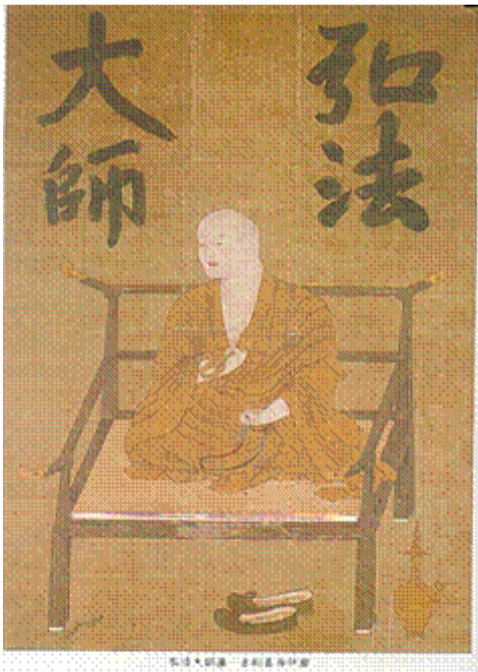 弘法
大師